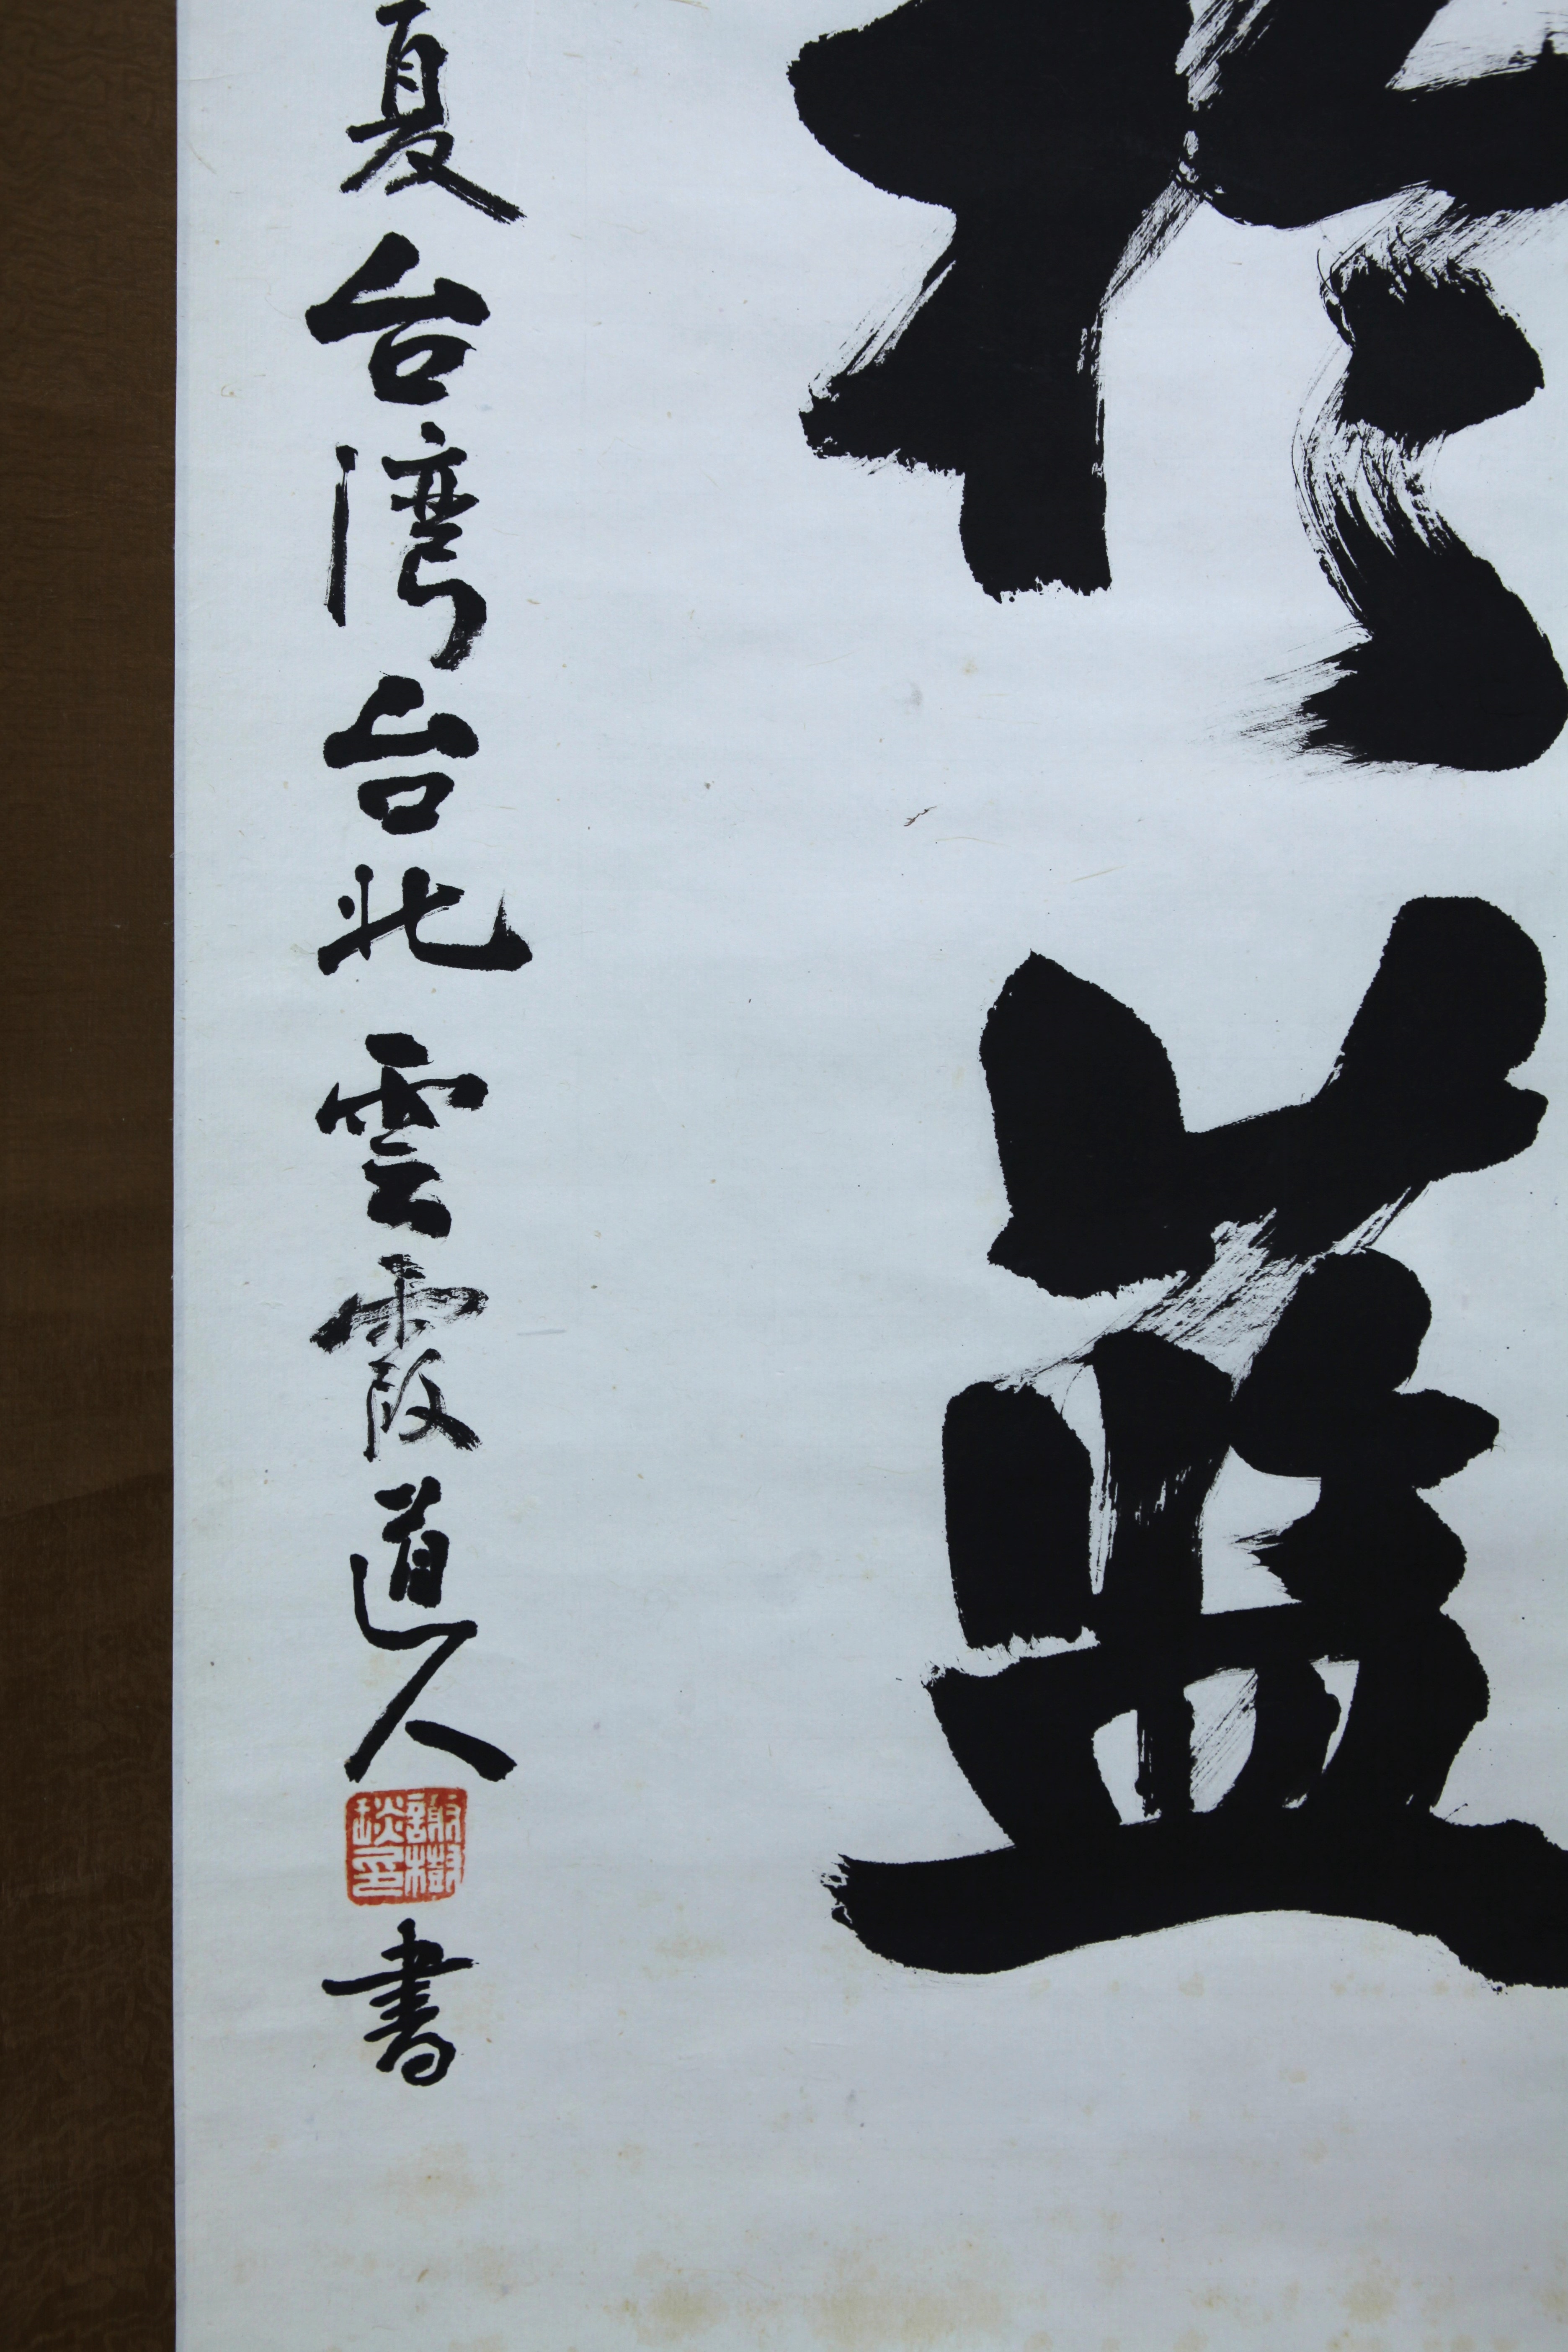 於藍
夏台湾台北 雲霞道人 書
謝樹
琰印